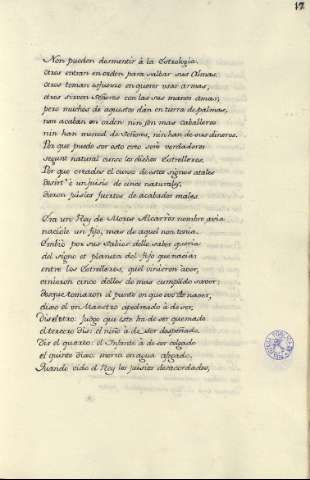 17
Non pueden desmentir à la Estrologia.
otros entran en orden para saltar sus almas
otros toman esfuerzo en querer usar armas,
otros sirven Señores con las sus manos amas,
pero muchos de aquestos dan en tierra de palmas,
non acaban en orden nin son mas caballeros
nin han merced de Señores, nin han de sus dineros.
Por que puede ser esto creo serè verdaderos
segunt natural curso los dichos estrelleros,
Por que creades el curso de estos signos atales
desirt' e un juisio de cinco naturales,
dieron juisios fuertes de acabados males.
Era un Rey de Moros Alcarros nombre avia
nacióle un fijo, mas de aquel non tenia.
Embiò por sus sabios dellos saber queria
del signo et planeta del fijo que nacia
entre los estrelleros, quel vinieron a ver,
vinieron cinco dellos de mas cumplido saver
desque tomaron el punto en que ovo de nacer,
dixo el un Maestro apedreado à de ser,
Dis el otro: Judgo que este ha de ser quemado
el tercero dis: el niño à de ser despeñado.
Dis el quarto: el Infante à de ser colgado
el quinto dixo: morrà en agua afogado.
Quando vido el Rey los juisios desacordados,